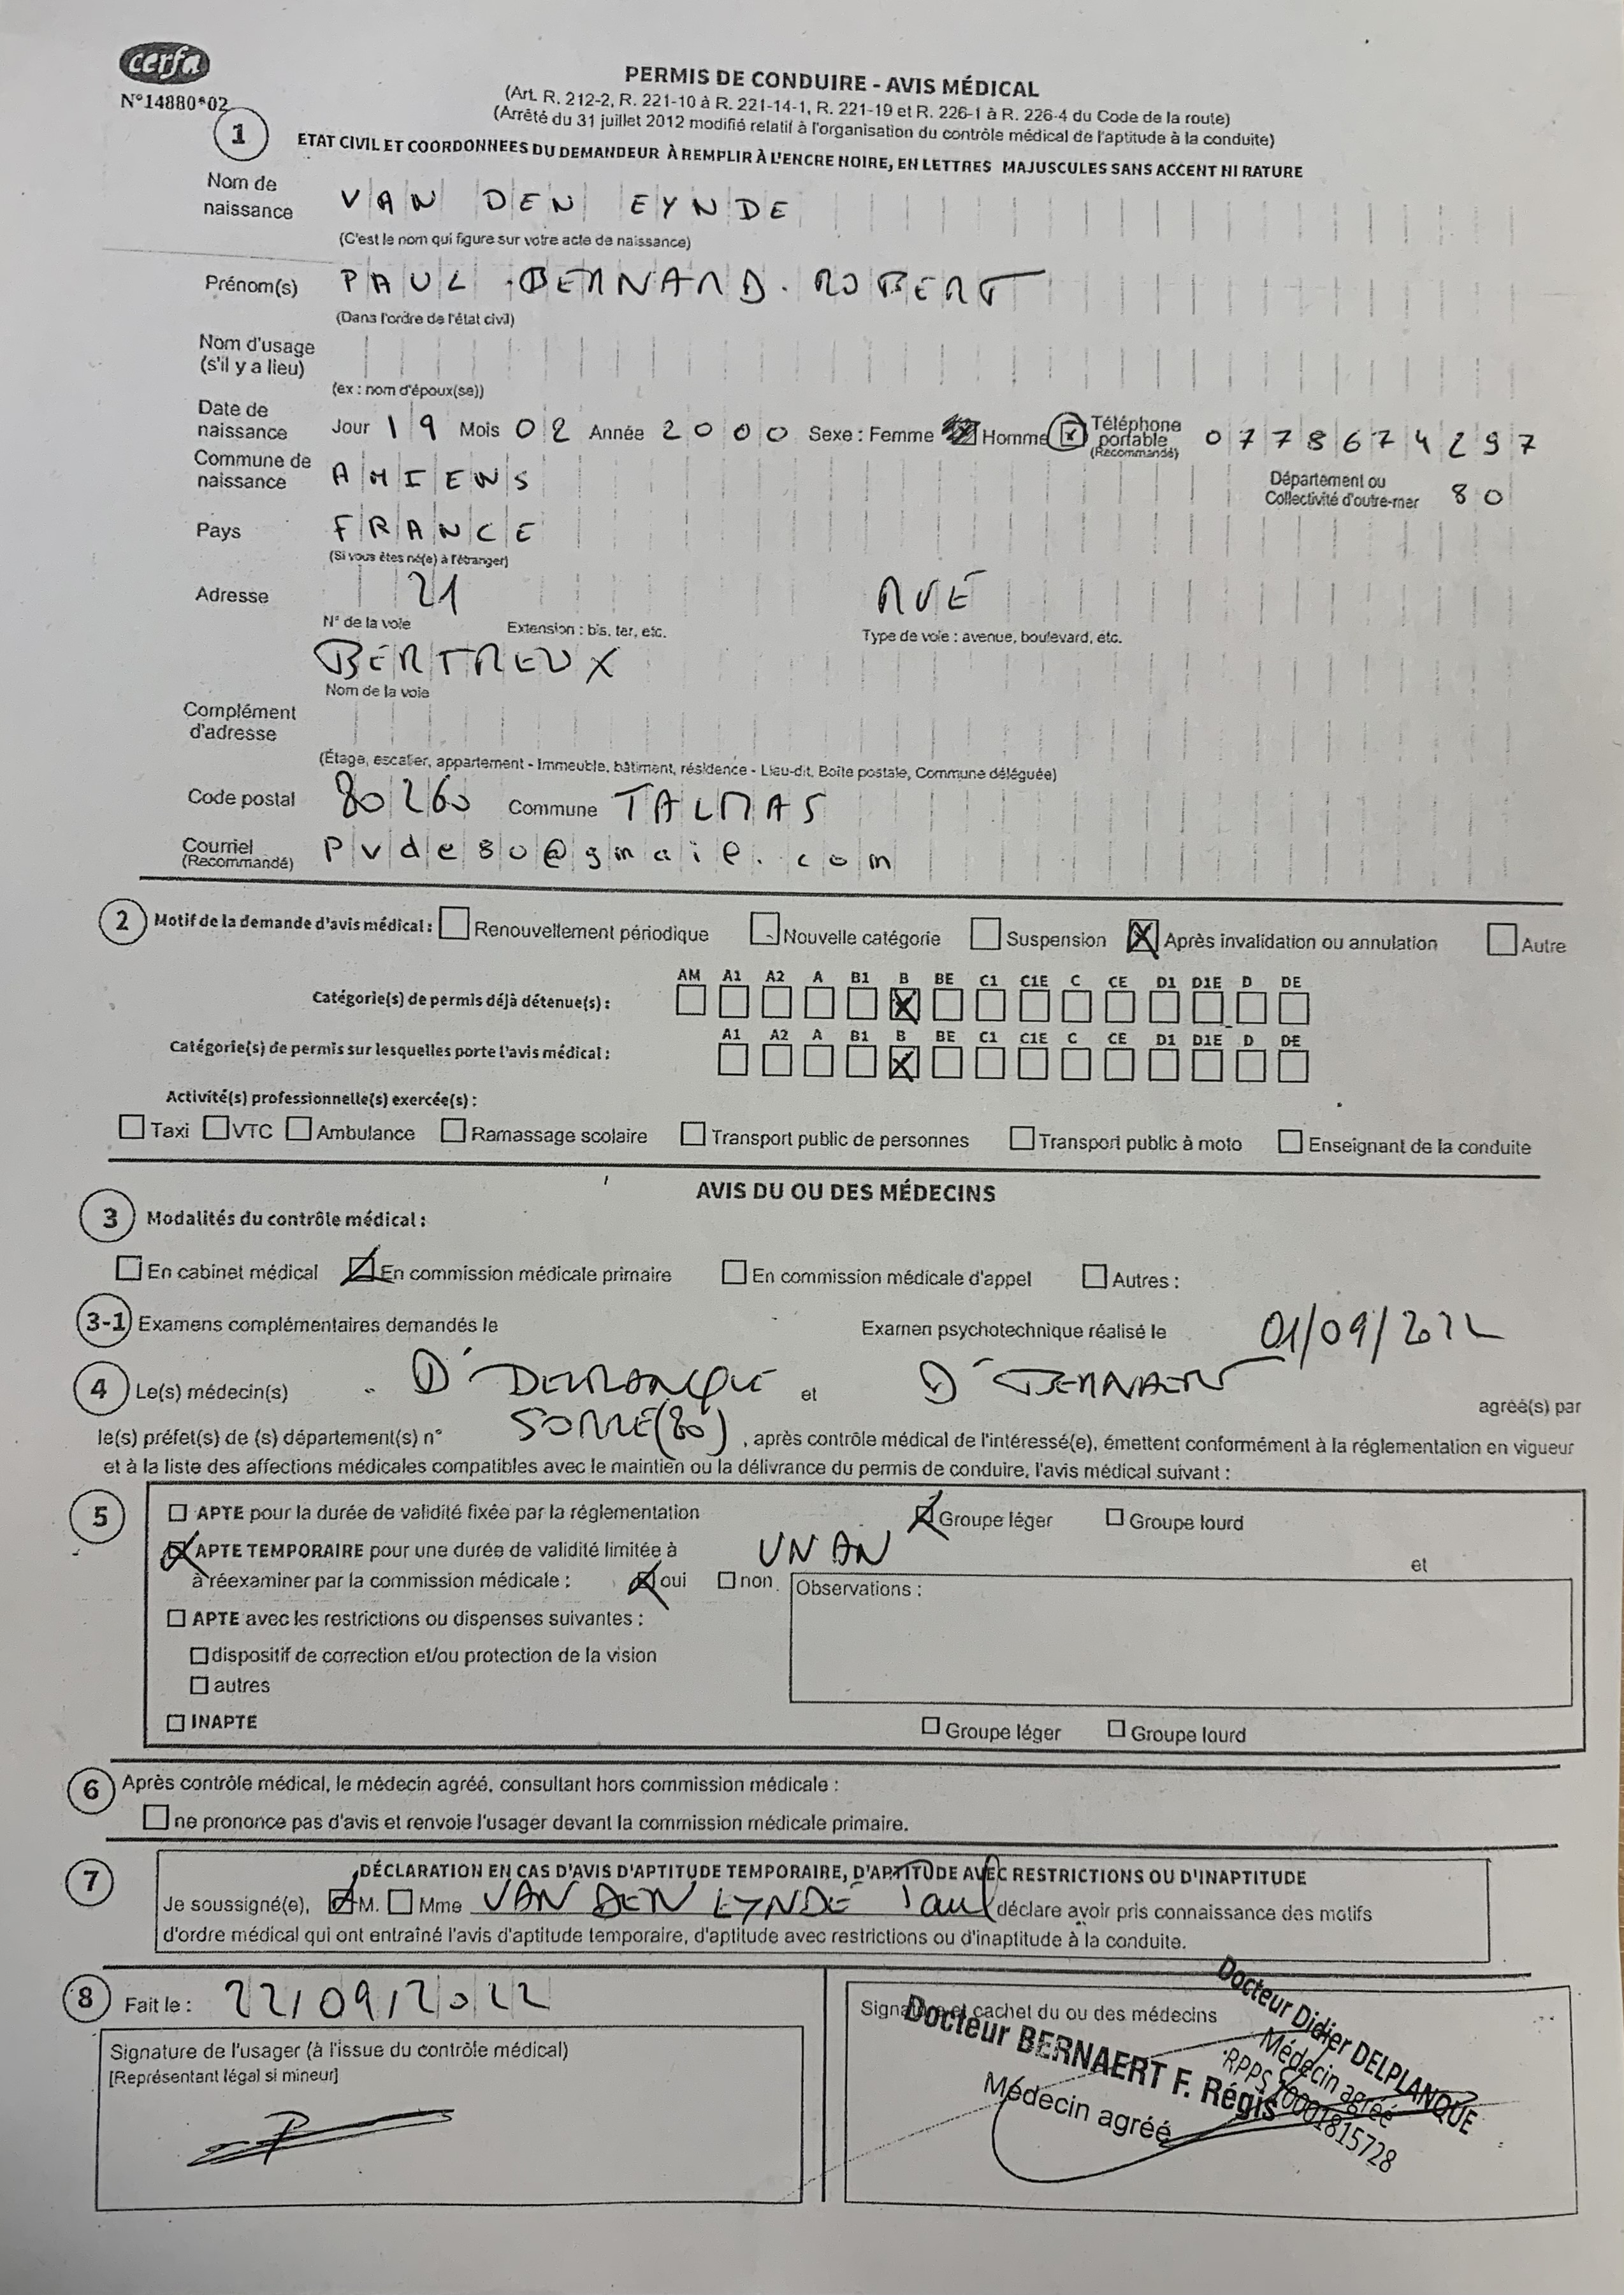 cerfa
N°14880*02
PERMIS DE CONDUIRE - AVIS MÉDICAL
(Art. R. 212-2, R. 221-10 à R. 221-14-1, R. 221-19 et R. 226-1 à R. 226-4 du Code de la route)
(Arrêté du 31 juillet 2012 modifié relatif à l'organisation du contrôle médical de l'aptitude à la conduite)
1 ETAT CIVIL ET COORDONNEES DU DEMANDEUR À REMPLIR À L'ENCRE NOIRE, EN LETTRES MAJUSCULES SANS ACCENT NI RATURE
Nom de naissance VAN DEN EYNDE
(C'est le nom qui figure sur votre acte de naissance)
Prénom(s) PAUL . BERNARD . ROBERT
(Dans l'ordre de l'état civil)
Nom d'usage (s'il y a lieu)
(ex : nom d'époux(se))
Date de naissance Jour 19 Mois 02 Année 2000 Sexe : Femme Homme Téléphone portable (Recommandé) 0778674297
Commune de naissance AMIENS Département ou Collectivité d'outre-mer 80
Pays FRANCE
(Si vous êtes né(e) à l'étranger)
Adresse 21 RUE
N° de la voie Extension : bis, ter, etc. Type de voie : avenue, boulevard, etc.
BERTREUX
Nom de la voie
Complément d'adresse
(Étage, escalier, appartement - Immeuble, bâtiment, résidence - Lieu-dit, Boîte postale, Commune déléguée)
Code postal 80260 Commune TALMAS
Courriel (Recommandé) Pvde80@gmail.com
2 Motif de la demande d'avis médical : Renouvellement périodique Nouvelle catégorie Suspension Après invalidation ou annulation Autre
AM A1 A2 A B1 B BE C1 C1E C CE D1 D1E D DE
Catégorie(s) de permis déjà détenue(s) :
A1 A2 A B1 B BE C1 C1E C CE D1 D1E D DE
Catégorie(s) de permis sur lesquelles porte l'avis médical :
Activité(s) professionnelle(s) exercée(s) :
Taxi VTC Ambulance Ramassage scolaire Transport public de personnes Transport public à moto Enseignant de la conduite
AVIS DU OU DES MÉDECINS
3 Modalités du contrôle médical :
En cabinet médical En commission médicale primaire En commission médicale d'appel Autres :
3-1 Examens complémentaires demandés le Examen psychotechnique réalisé le 01/09/2022
4 Le(s) médecin(s) Dr DELPLANQUE et Dr BERNAERT agréé(s) par
le(s) préfet(s) de (s) département(s) n° SOMME (80) , après contrôle médical de l'intéressé(e), émettent conformément à la réglementation en vigueur
et à la liste des affections médicales compatibles avec le maintien ou la délivrance du permis de conduire, l'avis médical suivant :
5 APTE pour la durée de validité fixée par la réglementation Groupe léger Groupe lourd
APTE TEMPORAIRE pour une durée de validité limitée à UN AN et
à réexaminer par la commission médicale : oui non Observations :
APTE avec les restrictions ou dispenses suivantes :
dispositif de correction et/ou protection de la vision
autres
INAPTE Groupe léger Groupe lourd
6 Après contrôle médical, le médecin agréé, consultant hors commission médicale :
ne prononce pas d'avis et renvoie l'usager devant la commission médicale primaire.
7 DÉCLARATION EN CAS D'AVIS D'APTITUDE TEMPORAIRE, D'APTITUDE AVEC RESTRICTIONS OU D'INAPTITUDE
Je soussigné(e), M. Mme VAN DEN EYNDE Paul déclare avoir pris connaissance des motifs
d'ordre médical qui ont entraîné l'avis d'aptitude temporaire, d'aptitude avec restrictions ou d'inaptitude à la conduite.
8 Fait le : 22/09/2022
Signature de l'usager (à l'issue du contrôle médical)
[Représentant légal si mineur]
Signature et cachet du ou des médecins
Docteur BERNAERT F. Régis
Médecin agréé
Docteur Didier DELPLANQUE
Médecin agréé
RPPS 10001815728